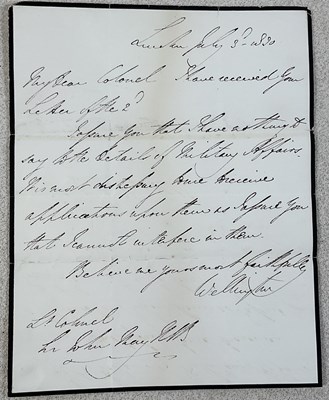 London July 3d 1830
My Dear Colonel I have received Your
Letter of the 2d
I assure You that I have nothing to
say to the Details of Military Affairs.
It is most distressing to me to receive
applications upon them as I assure You
that I cannot interfere in them.
Believe me yours most faithfully
Wellington
Lt Colonel
Sir John May KCB